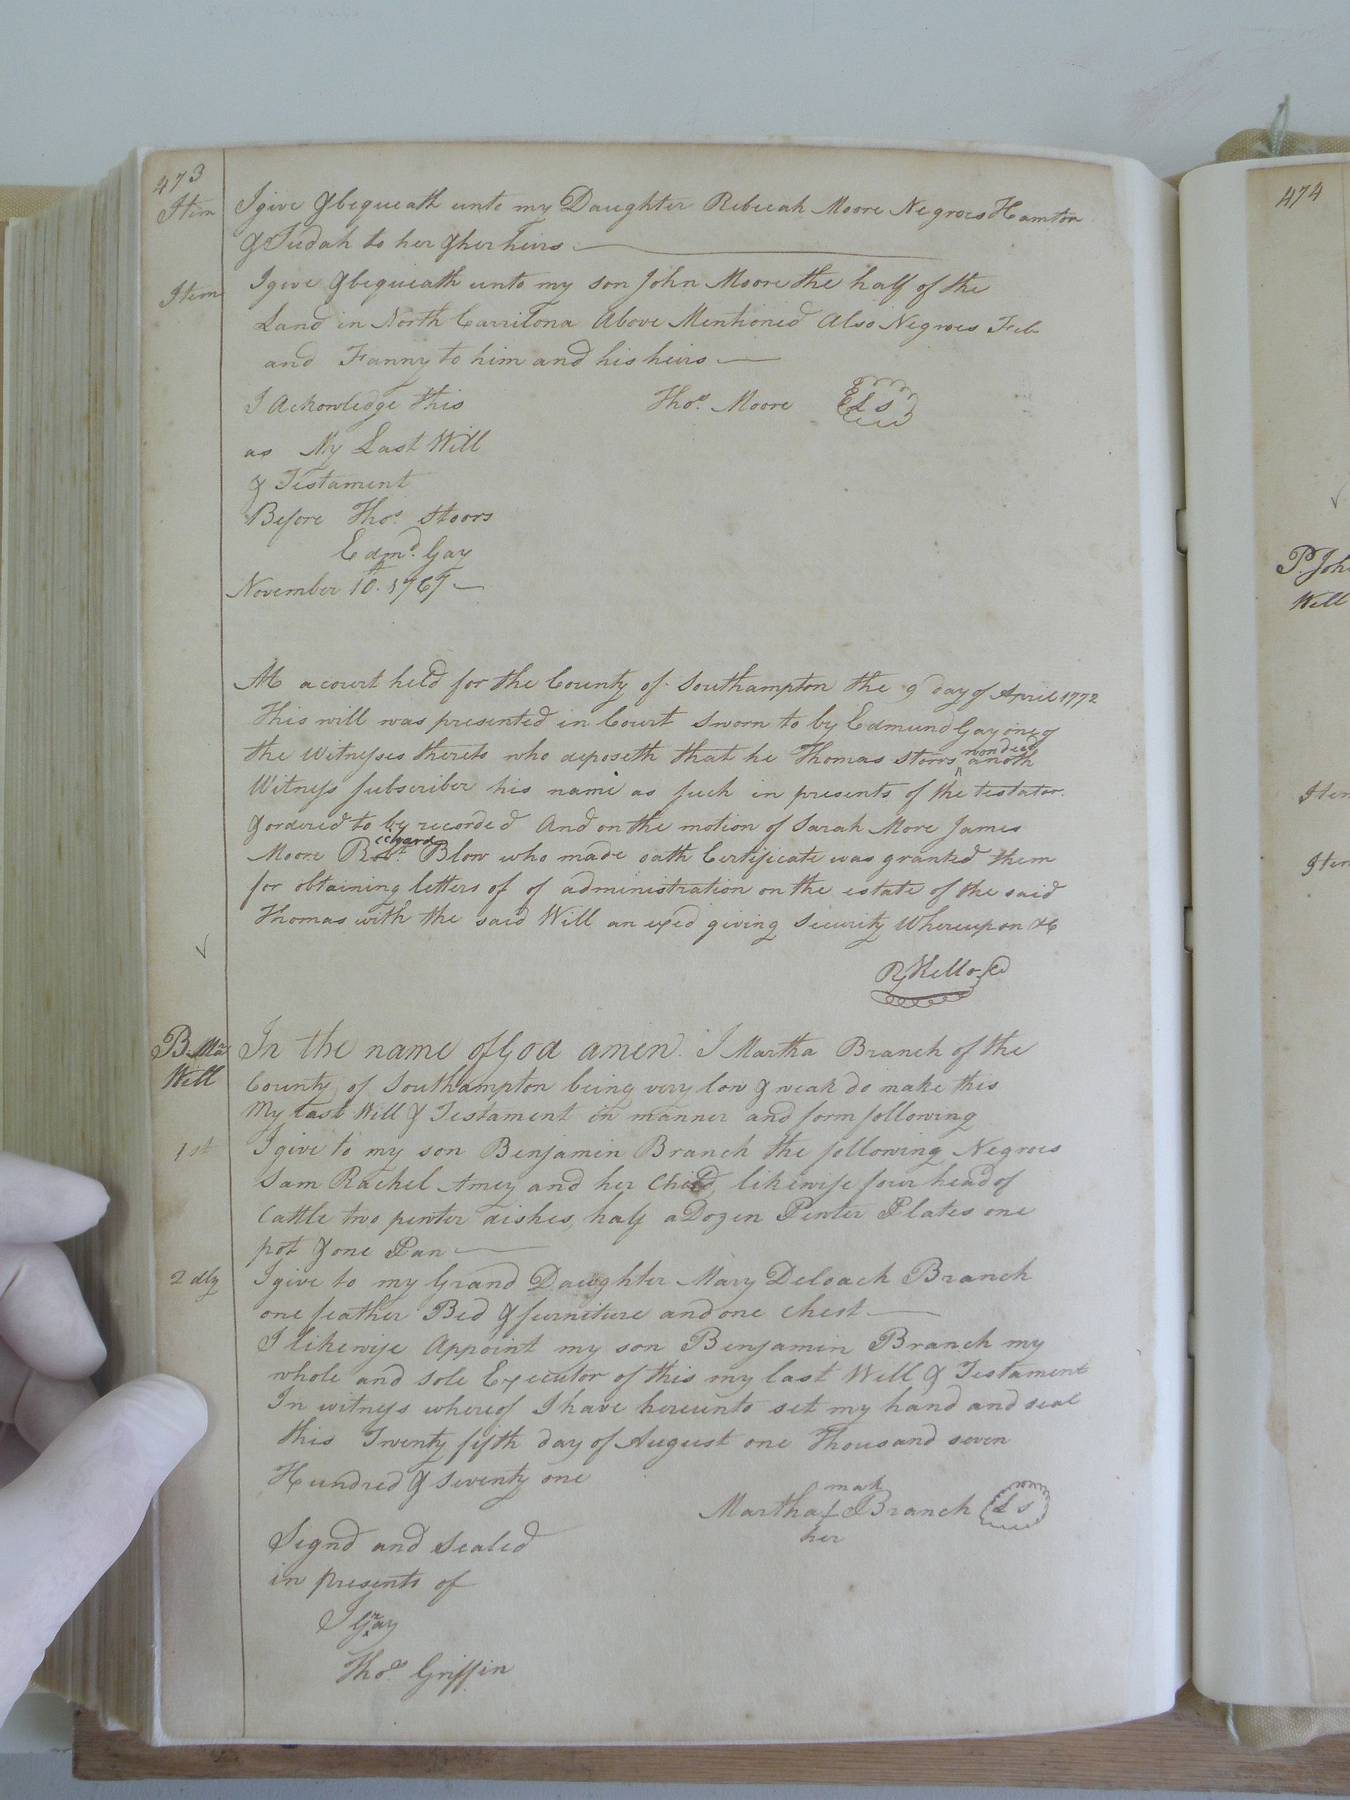 473
Item I give & bequeath unto my Daughter Rebecah Moore Negroes Hamton
& Judah to her & her heirs
Item I give & bequeath unto my son John Moore the half of the
Land in North Carrilona Above Mentioned Also Negroes Feb
and Fanny to him and his heirs
I Acknowledge this Thos. Moore L S
as My Last Will
& Testament
Before Thos. Stoors
Edmd. Gay
November 10th. 1767
At a court held for the County of Southampton the 9 day of April 1772
This will was presented in Court Sworn to by Edmund Gay one of
the Witnesses thereto who deposeth that he Thomas Storrs now dead anoth
Witness subscriber his name as such in presents of the testator
& ordered to by recorded And on the motion of Sarah More James
Moore Richard Blow who made oath Certificate was granted them
for obtaining letters of of administration on the estate of the said
Thomas with the said Will an exed giving Security Whereupon &C
R Kello Cl
B. Ma Will
In the name of God amen. I Martha Branch of the
County of Southampton being very low & weak do make this
My last Will & Testament in manner and form following
1st I give to my son Benjamin Branch the following Negroes
Sam Rachel Amey and her Child, likewise four head of
Cattle two pewter dishes, half a Dozen Pewter Plates one
pot & one Pan
2 dly I give to my Grand Daughter Mary Deloach Branch
one feather Bed & furniture and one Chest
I likewise Appoint my son Benjamin Branch my
whole and sole Executor of this my last Will & Testament
In witness whereof I have hereunto set my hand and seal
this Twenty fifth day of August one Thousand seven
Hundred & Seventy one
mark
Martha Branch L S
her
Signd and Sealed
in presents of
J Gray
Thos. Griffin
474
P. Joh
Will
Item
Item